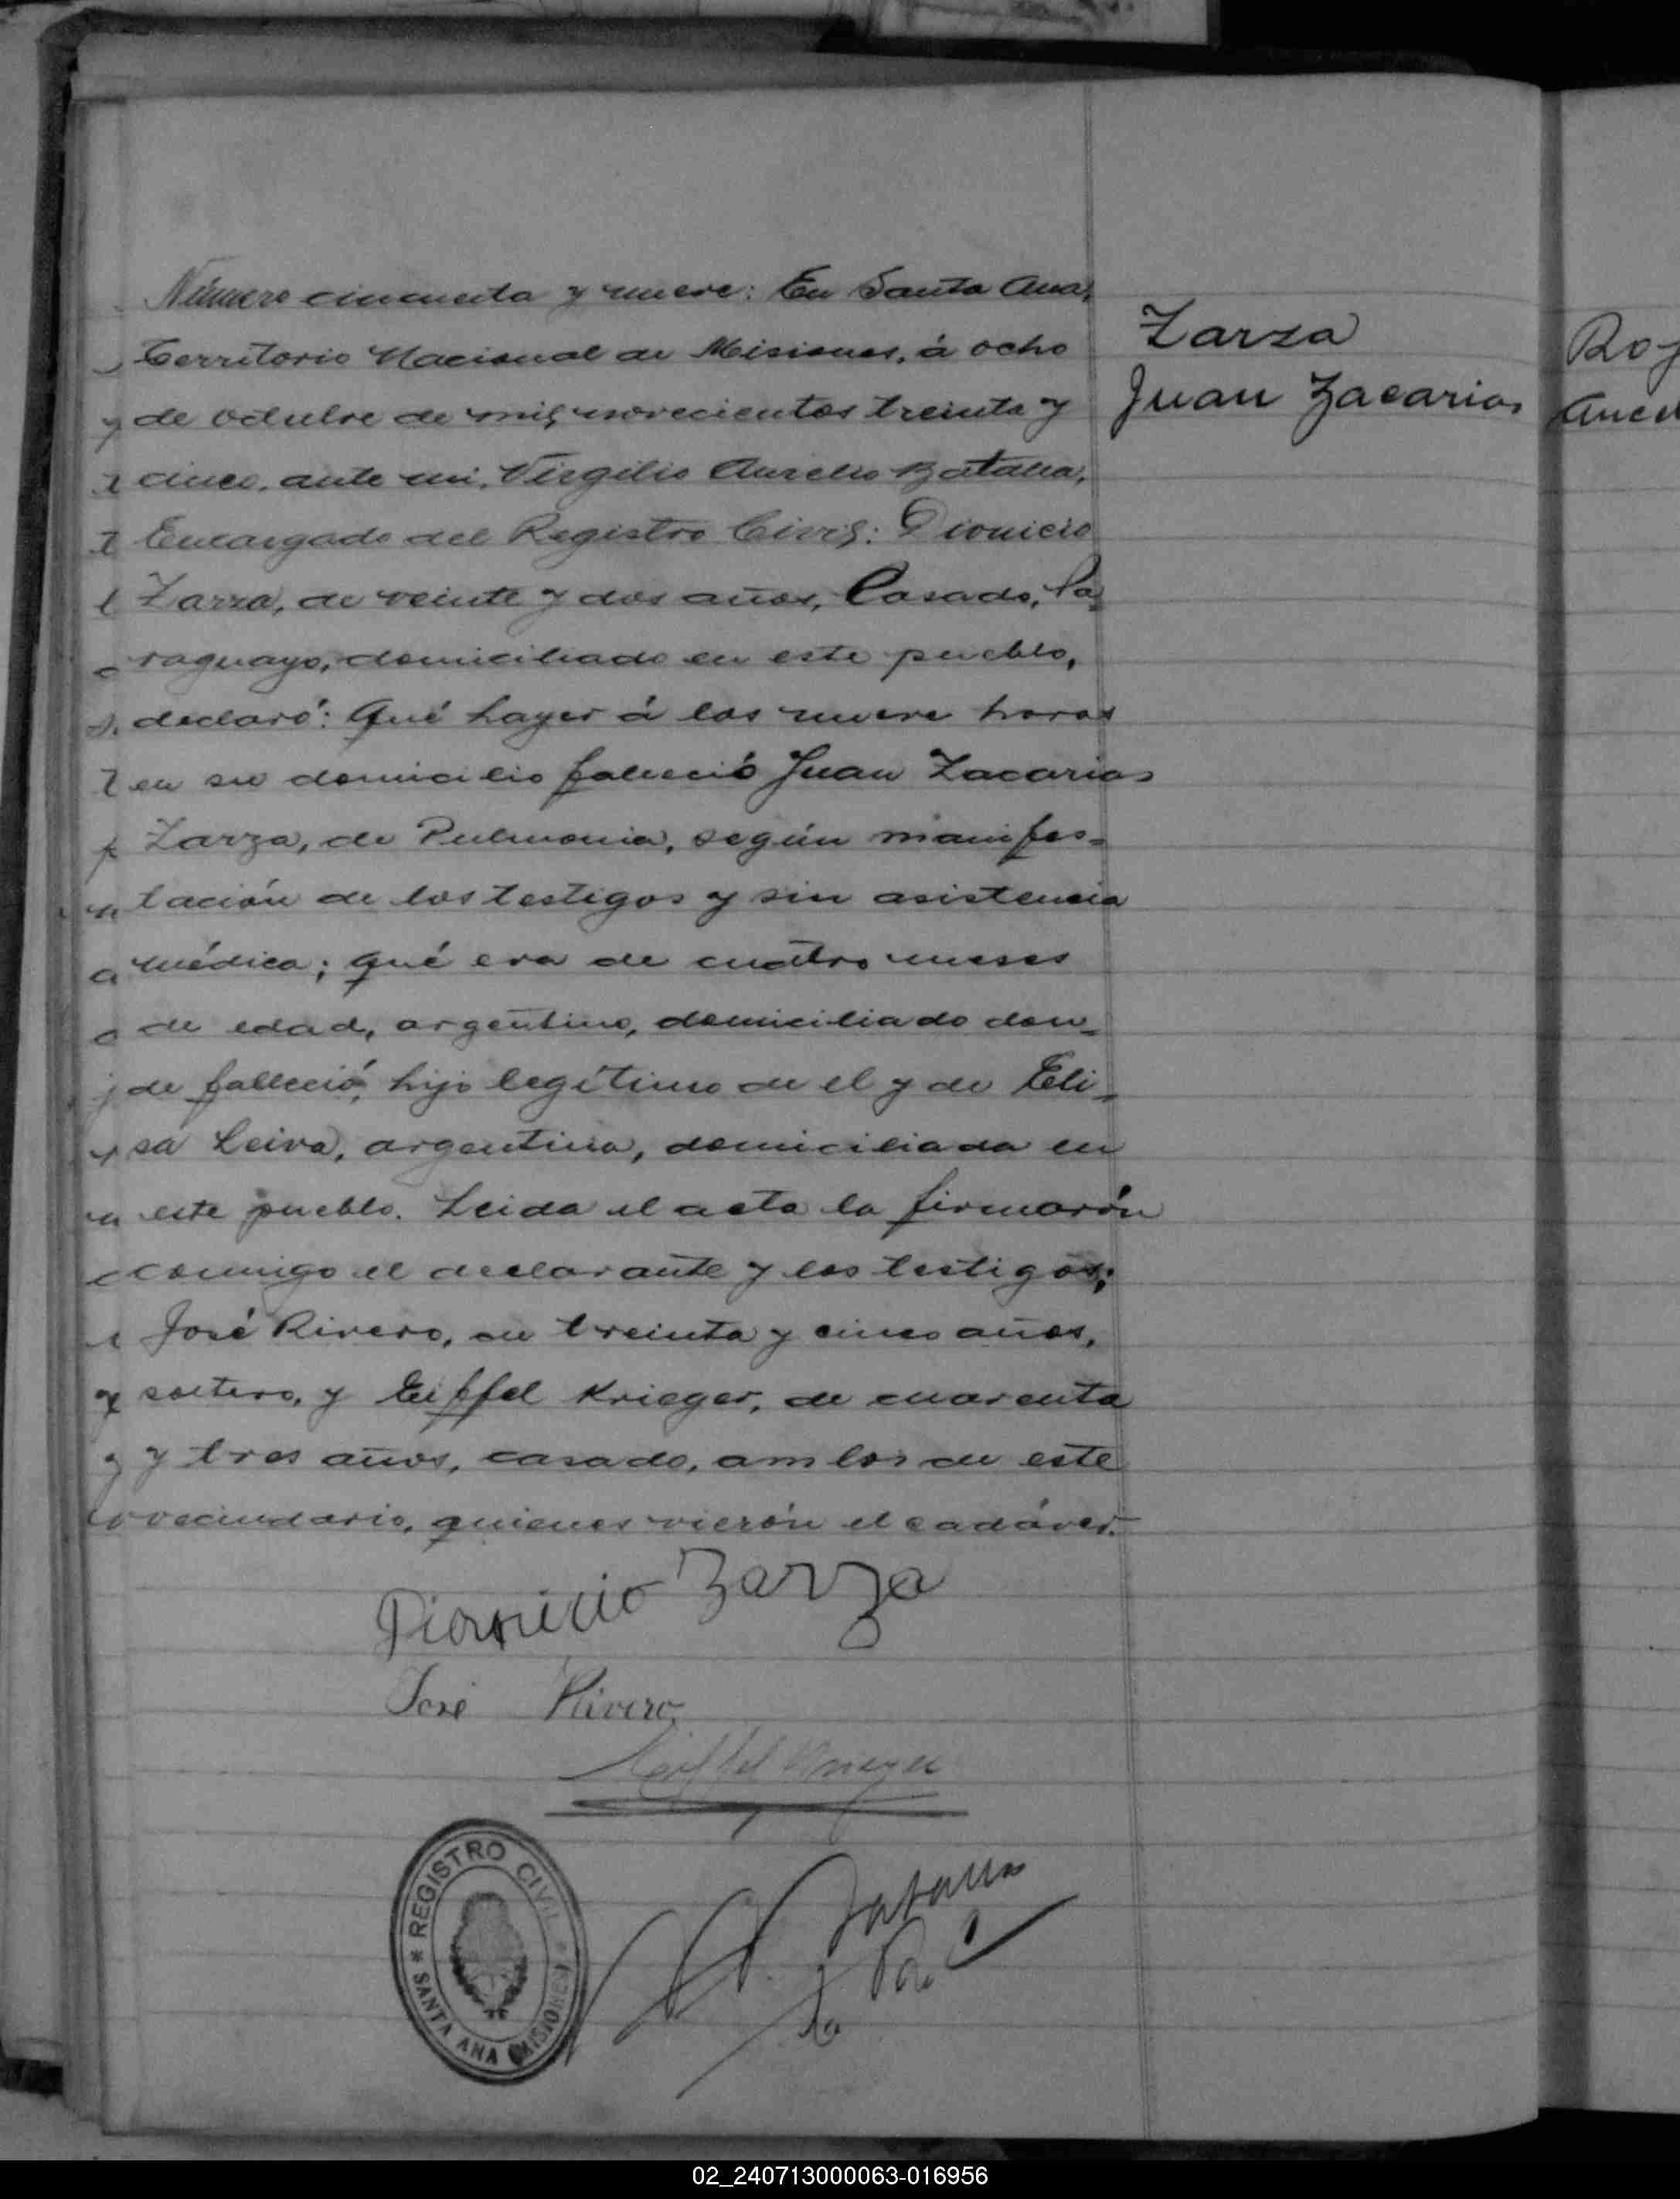 Número cincuenta y nueve: En Santa Ana,
Territorio Nacional de Misiones, á ocho
de octubre de mil novecientos treinta y
cinco, ante mi, Virgilio Aurelio Batalla,
Encargado del Registro Civil: Dionicio
Zarza, de veinte y dos años, Casado, Pa
raguayo, domiciliado en este pueblo,
declaró: Qué hayer á las nueve horas
en su domicilio falleció Juan Zacarias
Zarza, de Pulmonia, según manifes=
tación de los testigos y sin asistencia
médica; qué era de cuatro meses
de edad, argentino, domiciliado don_
de falleció, hijo legítimo de el y de Eli_
sa Leiva, argentina, domiciliada en
este pueblo. Leida el acta la firmarón
conmigo el declarante y los testigos;
José Rivero, de treinta y cinco años,
soltero, y Eiffel Krieger, de cuarenta
y tres años, casado, ambos de este
vecindario, quienes vierón el cadáver.
Zarza
Juan Zacarias
Dionicio Zarza
José Rivero
Eiffel Krieger
Batalla
REGISTRO CIVIL
SANTA ANA (MISIONES)
02_240713000063-016956